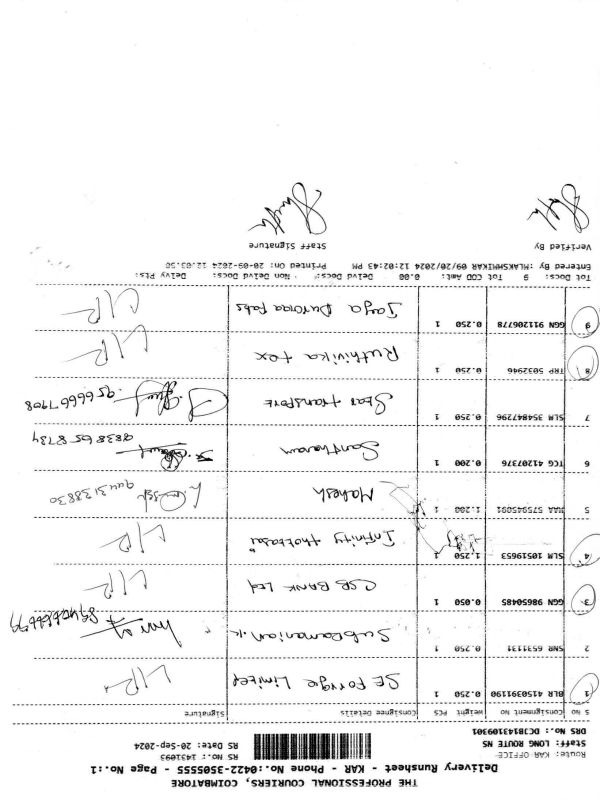 THE PROFESSIONAL COURIERS, COIMBATORE
Delivery Runsheet - KAR - Phone No.:0422-3505555 - Page No.:1
Route: KAR OFFICE RS No.: 1431093
Staff: LONG ROUTE NS RS Date: 20-Sep-2024
DRS No.: DCJB143109301
S NO Consignment No Weight PCS Consignee Details Signature
1 BLR 4150391190 0.250 SE Forge Limited
2 SNR 6531131 0.250 1 Subramanian.K
3 GGN 98650485 0.050 1 CSB BANK Ltd
4 SLM 10519653 1.250 1 Infinity
5 MAA 575945091 1.200 1 Mahesh
6 TCG 41207376 0.200 1 Santhanam 9838658734
7 SLM 354847296 0.250 1 Star transport 9566667908
8 TRP 5032946 0.250 1 Ruthivika tex
9 GGN 911206778 0.250 1 Jaya Durgaa Fabs
Tot Docs: 9 Tot COD Amt: 0.00 Delvd Docs: Non Delvd Docs: Delvry Pts:
Entered By :MLAKSHMIKAR 09/20/2024 12:02:43 PM Printed On: 20-09-2024 12:03:50
Verified By Staff Signature